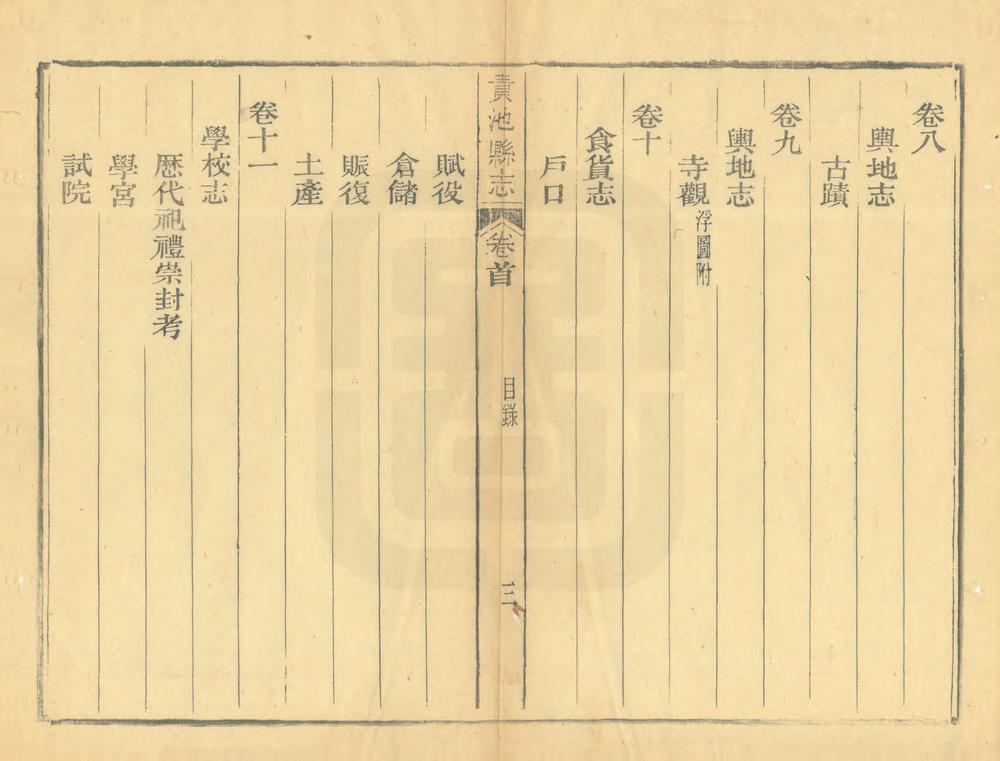 卷八
輿地志
古蹟
卷九
輿地志
寺觀浮圖附
卷十
食貨志
戶口
貴池縣志 卷首 目錄 三
賦役
倉儲
賑復
土產
卷十一
學校志
歷代祀禮崇封考
學宮
試院